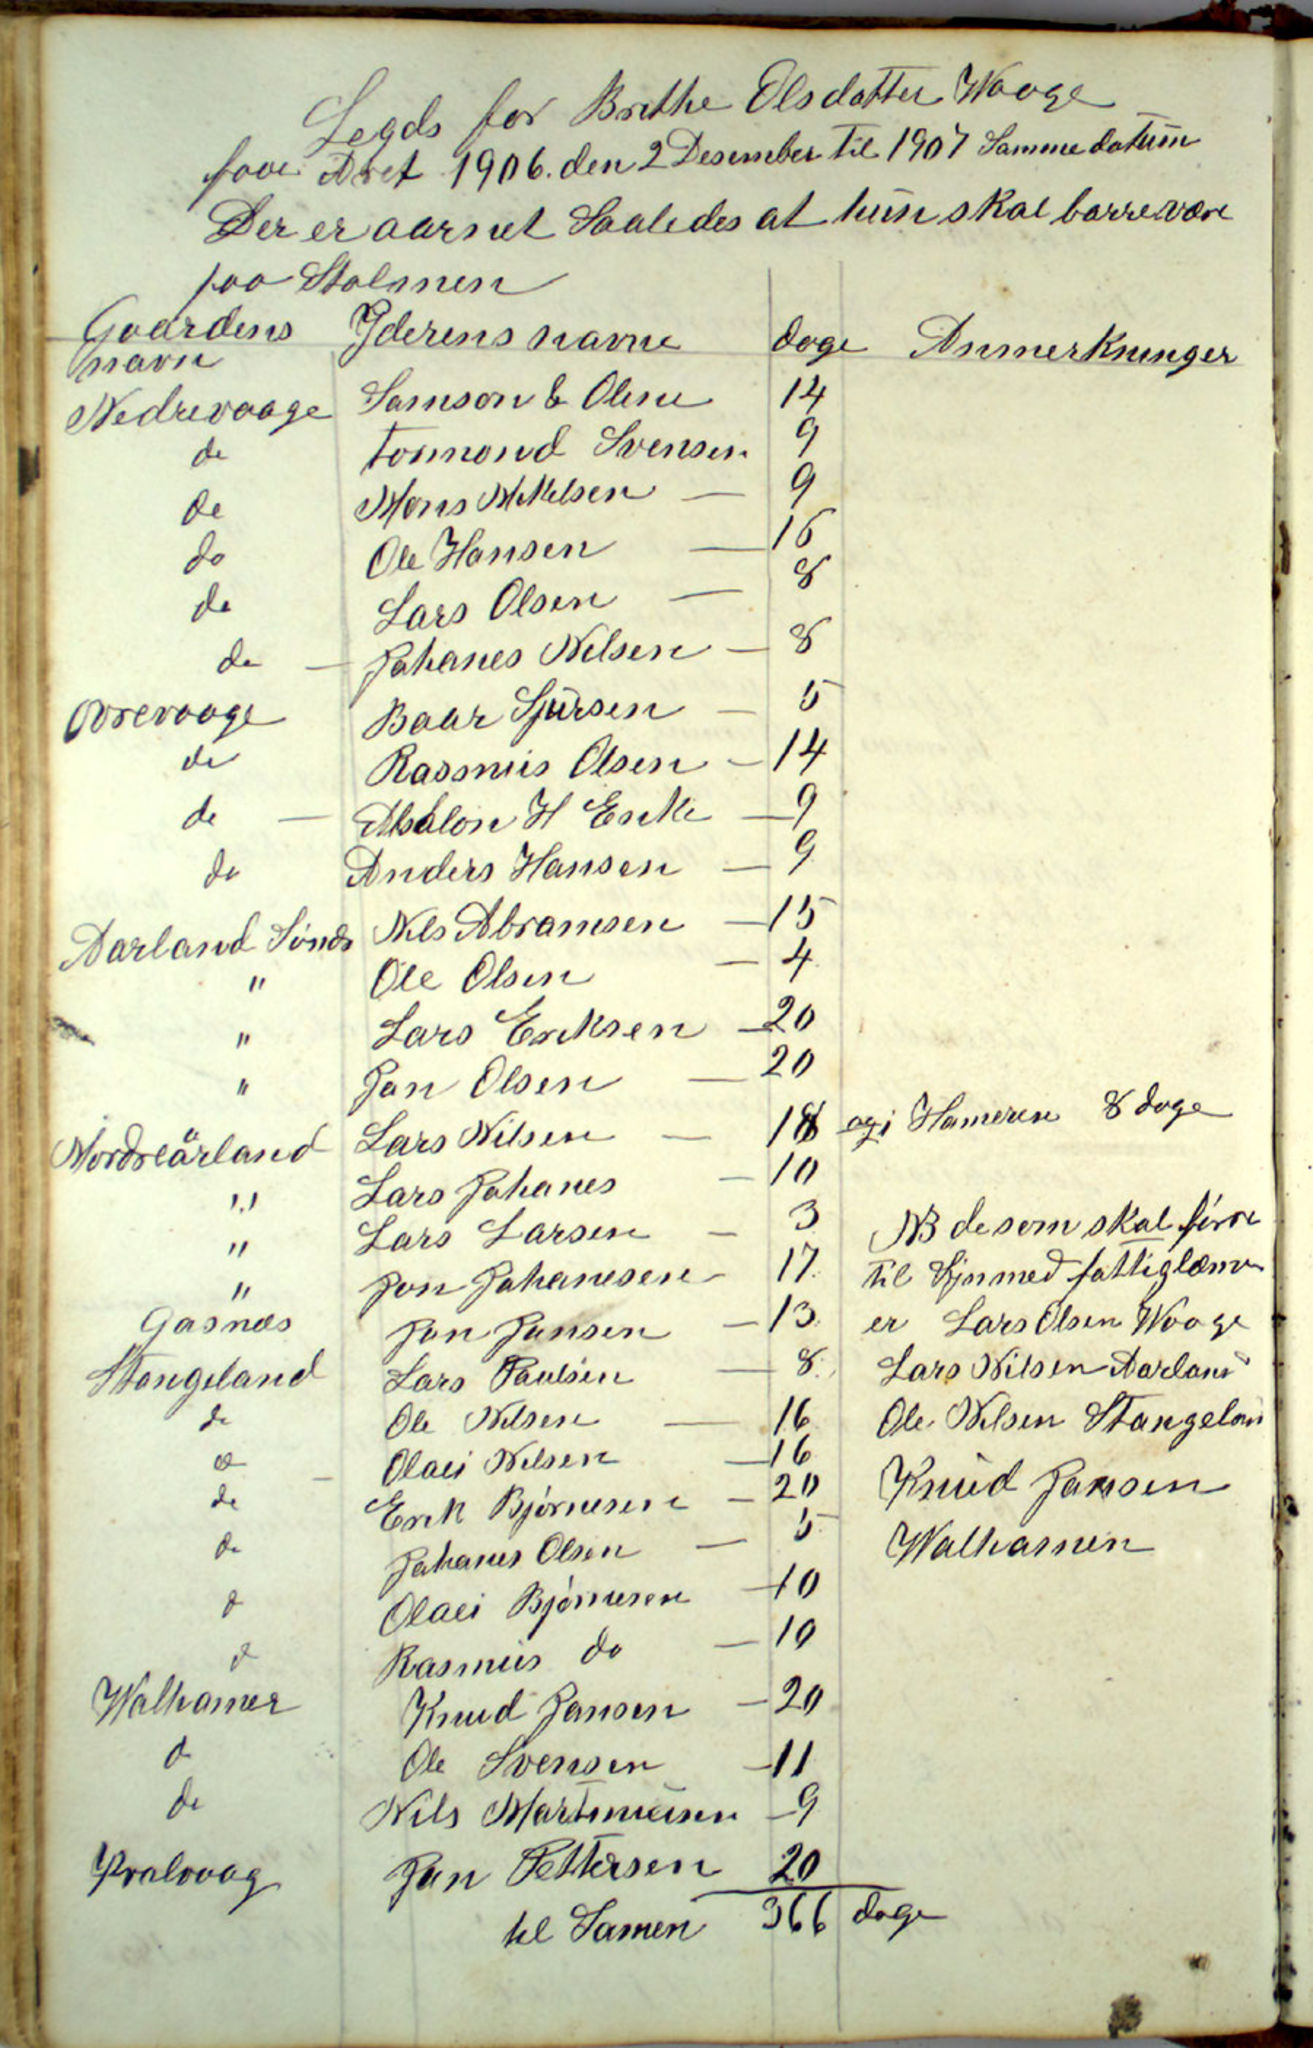 Legds for Brithe Olsdatter Waage
fore Aret 1906. den 2 Desember til 1907 Samme datum
Der er aarnet Saaledes at hun skal barre være
paa Stolmen
Gaardens navn Yderens navne dage Anmerkninger
Nedrevaage Samson & Olene 14
do Tormond Svensen 9
do Mons Mikkelsen — 9
do Ole Hansen — 16
do Lars Olsen — 8
do — Johanes Nilsen — 8
Øvrevaage Baar Sjursen — 5
do Rasmus Olsen — 14
do — Absalon H Erik — 9
do Anders Hansen — 9
Aarland Søndr Nils Abramsen — 15
" Ole Olsen — 4
" Lars Eriksen — 20
" Jan Olsen — 20
Nordreårland Lars Nilsen — 18 og i Hameren 8 dage
" Lars Johanes — 10
" Lars Larsen — 3 NB de som skal
" Jon Johanesen — 17. til Syn med fattiglæm
Gasnæs Jon Jansen — 13. er Lars Olsen Waage
Stangeland Lars Paulsen — 8. Lars Nilsen Aarland
do Ole Nilsen — 16 Ole Nilsen Stangelan
do — Olai Nilsen — 16
do Erik Bjørnesen — 20 Knud Jansen
do Johanes Olsen — 5 Walhamen
do Olai Bjørnesen — 10
do Rasmus do — 10
Walhamer Knud Jansen — 20
do Ole Svensen — 11
do Nils Martinusen — 9
Kvalvaag Jan Pettersen 20
til Samen 366 dage